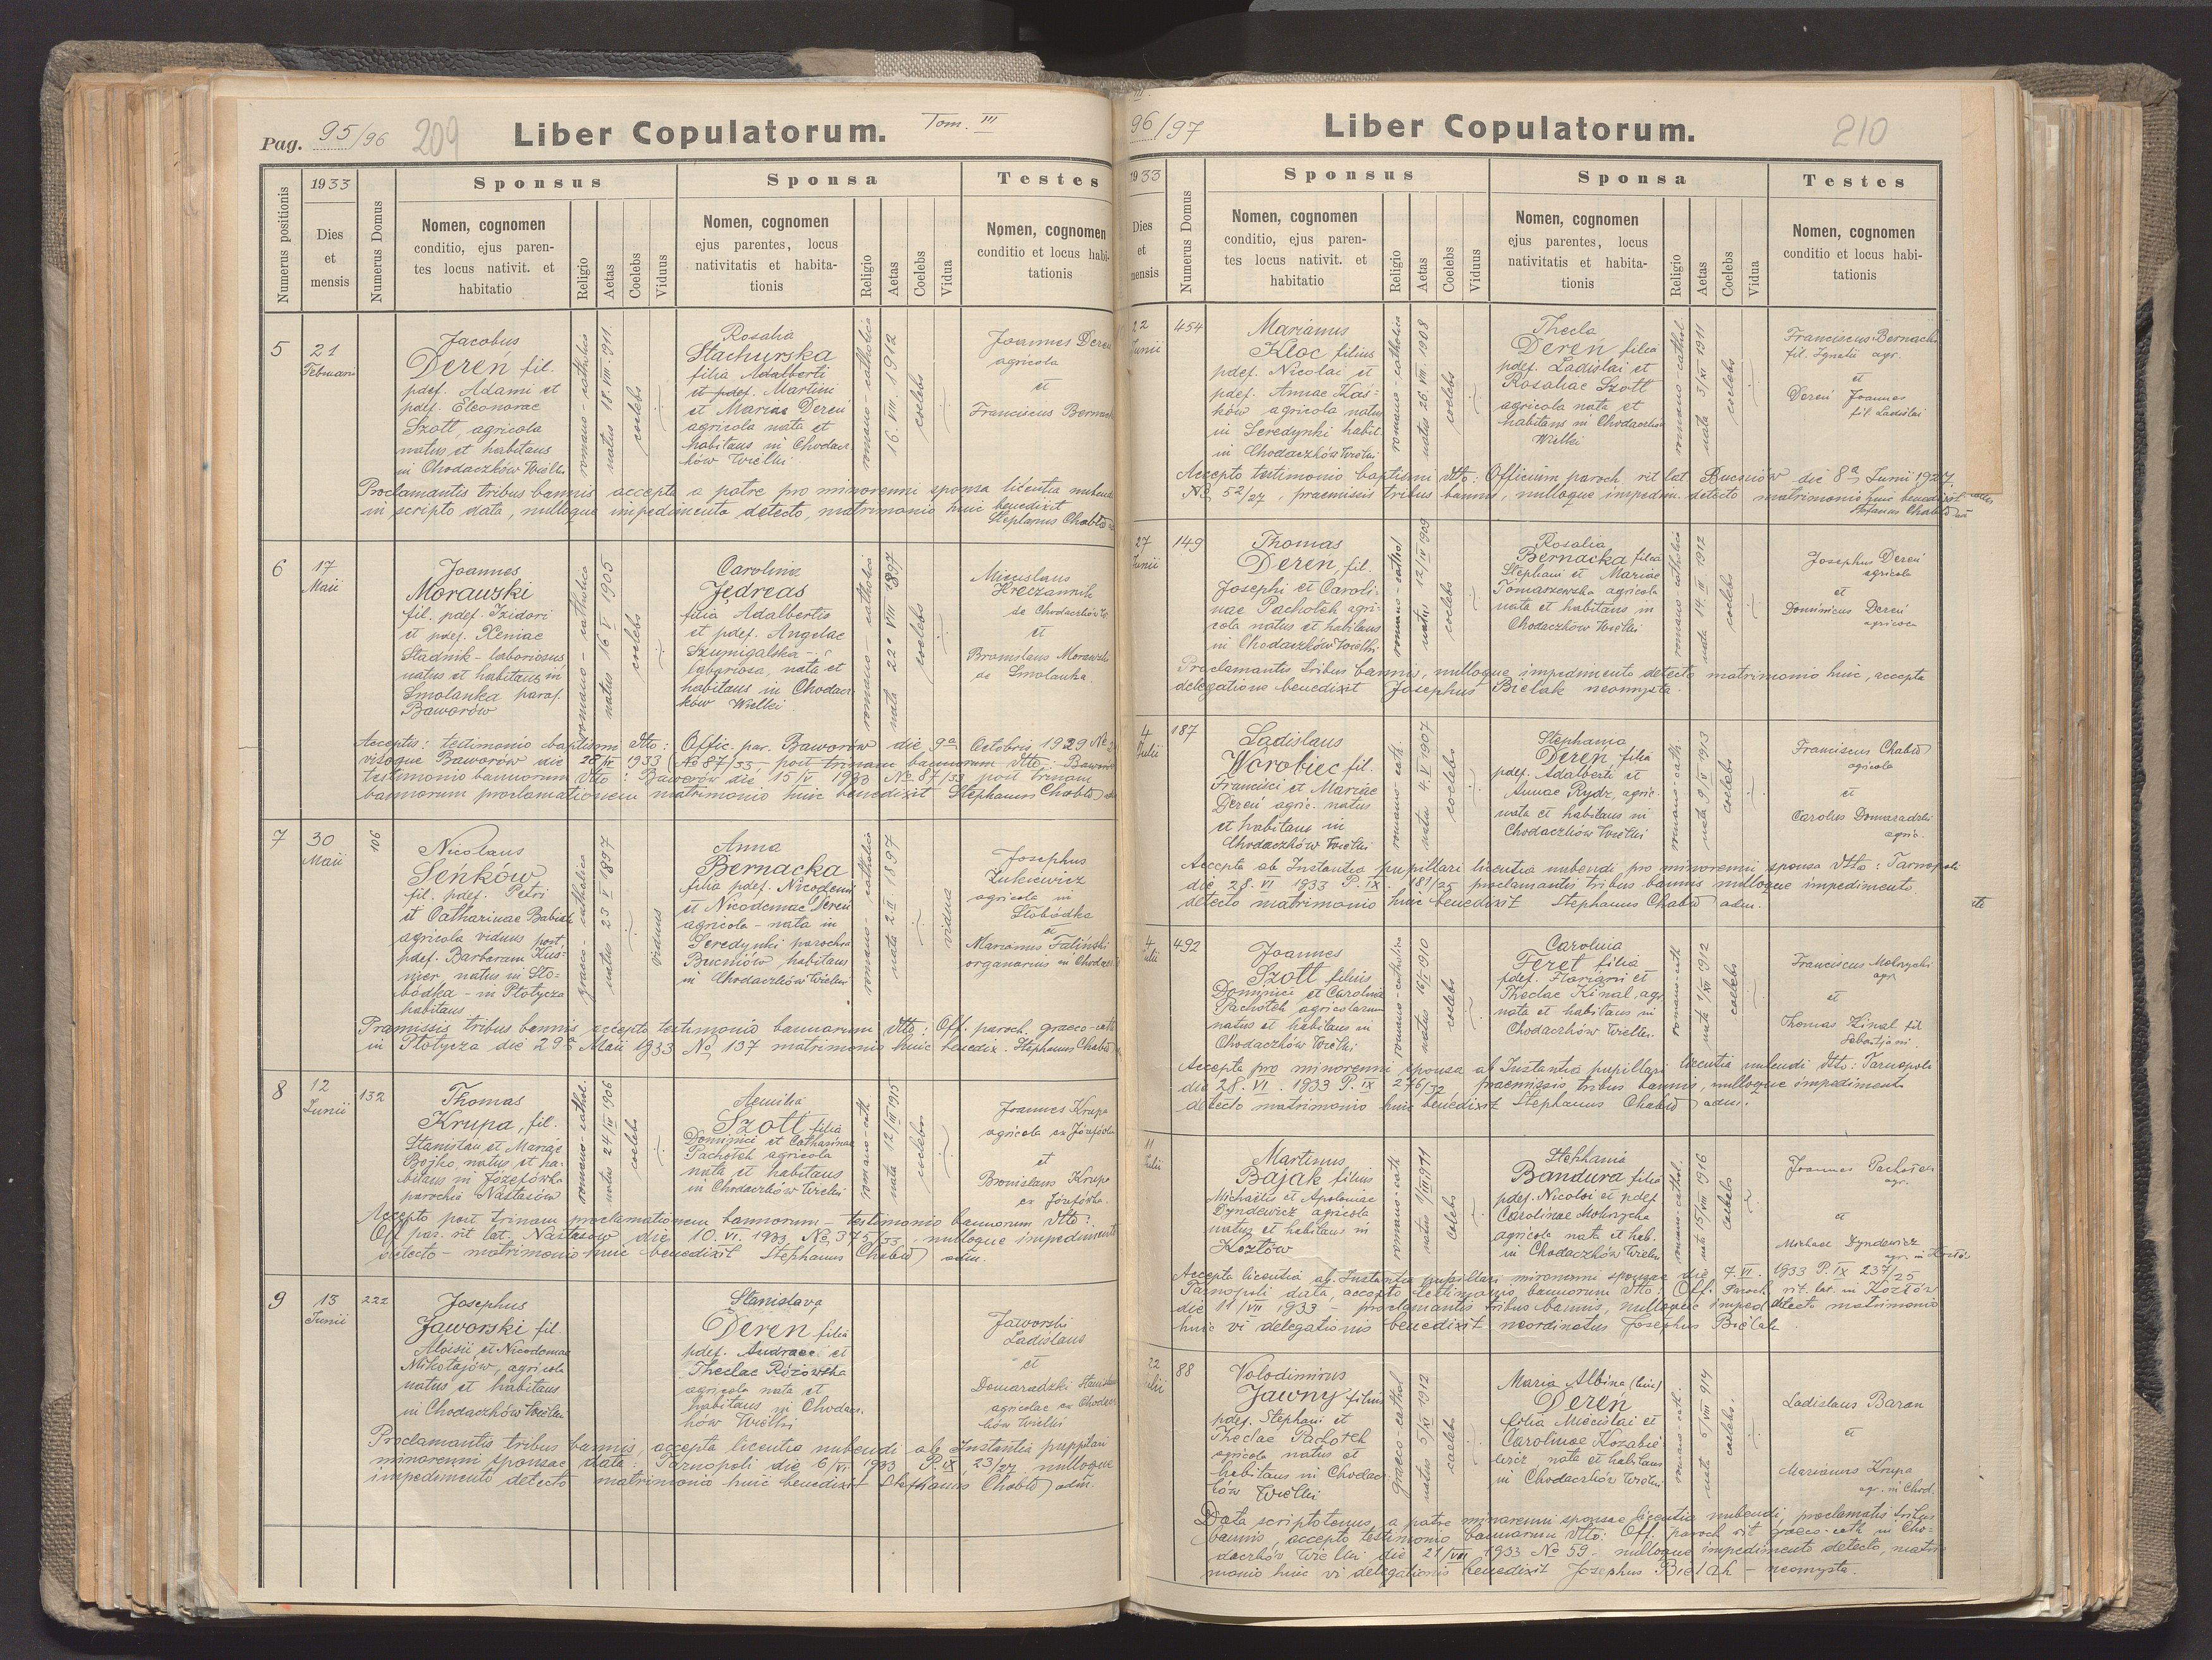 Pag. 95/96 209 Liber Copulatorum. Tom. III
Numerus positionis
1933
Dies et mensis
Numerus Domus
Sponsus
Nomen, cognomen
conditio, ejus paren-
tes locus nativit. et
habitatio
Religio
Aetas
Coelebs
Viduus
Sponsa
Nomen, cognomen
ejus parentes, locus
nativitatis et habita-
tionis
Religio
Aetas
Coelebs
Vidua
Testes
Nomen, cognomen
conditio et locus habi-
tationis
5
21
Februarii
Jacobus
Dereń fil.
pdef. Adami et
pdef. Eleonorae
Szott, agricola
natus et habitans
in Chodaczków Wielki
romano-catholica
natus 18. VIII. 1911.
coelebs
Rosalia
Stachurska
filia Adalberti
et pdef. Martini
et Mariae Dereń
agricola nata et
habitans in Chodacz-
ków Wielki
romano-catholica
16. VIII. 1912
coelebs
Joannes Dereń
agricola
et
Franciscus Bernac
Proclamantis tribus bannis, accepta a patre pro minorenni sponsa licentia nubendi
in scripto data, nulloque impedimento detecto, matrimonio huic benedixit
Stephanus Chabło
6
17
Maii
Joannes
Morawski
fil. pdef. Izidori
et pdef. Xeniae
Stadnik - laboriosus
natus et habitans in
Smolanka paraf.
Baworów
romano-catholica
natus 16 V 1905
coelebs
Carolina
Jędreas
filia Adalberti
et pdef. Angelae
Szumigalska -
laboriosa, nata et
habitans in Chodacz-
ków Wielki
romano-catholica
nata 22 VIII 1897
coelebs
Miecislaus
Hreczannik
de Chodaczków W.
et
Bronislaus Morawski
de Smolanka.
Acceptis: testimonio baptismi dtto: Offic. par. Baworów die 9a Octobris 1929 No
visoque Baworów die 28/IV 1933 (No 87/33 - post trinam bannorum dtto: Baworów
testimonio bannorum dtto: Baworów die 15/V 1933 No. 87/33 post trinam
bannorum proclamationem matrimonio huic benedixit Stephanus Chabło
7
30
Maii
106
Nicolaus
Seńków
fil. pdef. Petri
et Catharinae Babick
agricola viduus post
pdef. Barbaram Kuś-
nier, natus in Sło-
bódka - in Płotycza
habitans
graeco-catholica
natus 23 V 1897
viduus
Anna
Bernacka
filia pdef. Nicodemi
et Nicodemae Dereń
agricola - nata in
Seredynki parochia
Bucniów, habitans
in Chodaczków Wielki
romano-catholica
nata 2. II. 1897
vidua
Josephus
Łukiewicz
agricola in
Słobódka
et
Marianus Faliński
organarius in Chodacz
Praemissis tribus bannis, accepto testimonio bannorum dtto: Off. paroch. graeco-cath
in Płotycza die 29a Maii 1933 No 137 matrimonio huic benedix. Stephanus Chabło
8
12
Iunii
132
Thomas
Krupa, fil.
Stanislai et Mariae
Bojko, natus et ha-
bitans in Józefówka
parochia Nastasów
romano-cathol.
natus 24/IV 1906
coelebs
Aemilia
Szott filia
Dominici et Catharinae
Pachołek agricola
nata et habitans
in Chodaczków Wielki
romano-cath.
nata 12/III 1915
coelebs
Joannes Krupa
agricola ex Józefówka
et
Bronislaus Krupa
ex Józefówka.
Accepto post trinam proclamationem bannorum - testimonio bannorum dtto:
Off par. rit lat. Nastasow die 10. VI. 1933 No 375/33, nulloque impedimento
detecto - matrimonio huic benedixit Stephanus Chabło adm.
9
13
Iunii
222
Josephus
Jaworski fil.
Aloisii et Nicodemae
Mikołajów, agricola
natus et habitans
in Chodaczków Wielki
Stanislava
Dereń filia
pdef. Andreae et
Theclae Różowska
agricola nata et
habitans in Chodacz-
ków Wielki
Jaworski
Ladislaus
et
Domaradzki Stanislaus
agricolae ex Chodacz
ków Wielki
Proclamantis tribus bannis, accepta licentia nubendi ab Instantia puppilari
minorenni sponsae data: Tarnopoli die 6/VI 1933 P. IX, 23/27, nulloque
impedimento detecto matrimonio huic benedixit Stephanus Chabło adm.
96/97 Liber Copulatorum. 210
1933
Dies
et
mensis
Numerus Domus
Sponsus
Nomen, cognomen
conditio, ejus paren-
tes locus nativit. et
habitatio
Religio
Aetas
Coelebs
Viduus
Sponsa
Nomen, cognomen
ejus parentes, locus
nativitatis et habita-
tionis
Religio
Aetas
Coelebs
Vidua
Testes
Nomen, cognomen
conditio et locus habi-
tationis
22
Iunii
454
Marianus
Kloc filius
pdef. Nicolai et
pdef. Annae Kas-
ków agricola natus
in Seredynki habit.
in Chodaczków Wielki
romano-catholica
natus 26. VIII. 1908
coelebs
Thecla
Dereń filia
pdef. Ladislai et
Rosaliae Szott
agricola nata et
habitans in Chodaczków
Wielki
romano-cathol.
nata 3/XI 1911
coelebs
Franciscus Bernacki
fil. Ignatii agr.
et
Dereń Joannes
fil. Ladislai
Accepto testimonio baptismi dtto: Officium paroch. rit lat Bucniów die 8a Iunii 1927.
No 52/27, praemissis tribus bannis, nulloque impedim. detecto matrimonio huic benedixit
Stefanus Chabło
27
Iunii
149
Thomas
Dereń, fil.
Josephi et Caroli-
nae Pachołek agri-
cola natus et habitans
in Chodaczków Wielki
romano-cathol
natus 12/IV 1909
coelebs
Rosalia
Bernacka filia
Stephani et Mariae
Tomaszewska agricola
nata et habitans in
Chodaczków Wielki
romano-catholica
nata 14. II 1912
coelebs
Josephus Dereń
agricola
et
Dominicus Dereń
agricola
Proclamantis tribus bannis, nulloque impedimento detecto matrimonio huic, accepta
delegatione benedixit Josephus Bielak neomysta.
4
Iulii
187
Ladislaus
Worobiec fil.
Francisci et Mariae
Dereń agric. natus
et habitans in
Chodaczków Wielki
romano-cath.
natus 4. V 1907
coelebs
Stephania
Dereń, filia
pdef. Adalberti et
Annae Rydz, agric.
nata et habitans in
Chodaczków Wielki
romano-cath.
nata 9/V 1913
coelebs
Franciscus Chabło
agricola
et
Carolus Domaradzki
agric.
Accepta ab Instantia pupillari licentia nubendi pro minorenni sponsa dtto: Tarnopoli
die 28. VI 1933 P. IX. 181/25 proclamantis tribus bannis nulloque impedimento
detecto matrimonio huic benedixit Stephanus Chabło adm.
4
Iulii
492
Joannes
Szott filius
Dominici et Carolina
Pachołek agricolarum
natus et habitans in
Chodaczków Wielki
romano-catholica
coelebs
Carolina
Feret filia
pdef. Floriani et
Theclae Kinal, agr.
nata et habitans in
Chodaczków Wielki.
romano-cath
nata 1/XII 1912
coelebs
Franciscus Mokrycki
agr.
et
Thomas Kinal fil
Sebastiani.
Accepta pro minorenni sponsa ab Instantia pupillari licentia nubendi dtto: Tarnopoli
die 28. VI. 1933 P. IX 276/32 praemissis tribus bannis, nulloque impedimento
detecto matrimonio huic benedixit Stephanus Chabło adm.
11
Iulii
Martinus
Bajak filius
Michaelis et Apoloniae
Dyndewicz agricola
natus et habitans in
Kozłów
romano-cath
coelebs
Stephania
Bandura filia
pdef. Nicolai et pdef
Carolinae Mokrycka
agricola nata et hab.
in Chodaczków Wielki
romano-cathol.
nata 15/VIII 1916
coelebs
Joannes Pachołek
agr.
et
Michael Dyndewicz
agr. in Kozłów
Accepta licentia ab Instantia pupillari minorenni sponsae die 7. VI. 1933 P. IX 237/25
Tarnopoli data, accepto testimonio bannorum dtto: Off. Paroch. rit. lat. in Kozłów
die 11/VII 1933 - proclamantis tribus bannis, nulloque imped detecto matrimonio
huic vi delegationis benedixit neordinatus Josephus Bielak.
22
Iulii
88
Volodimirus
Jawny filius
pdef. Stephani et
Theclae Pachołek
agricola natus et
habitans in Chodacz
ków Wielki
graeco-cathol
natus 5/XI 1912
caelebs
Maria Albina (bin)
Dereń
filia Miecislai et
Carolinae Kozabie
wicz, nata et habitans
in Chodaczków Wielki
romano-cath.
nata 6/VIII 914
coelebs.
Ladislaus Baran
et
Marianus Krupa
agr. in Chod.
Data scriptotenus a patre minorenni sponsae licentia nubendi, proclamatis tribus
bannis, accepto testimonio bannorum dtto: Off. paroch rit graeco-cath in Cho-
daczków Wielki die 21/VII 1933 No 59. nulloque impedimento detecto, matri-
monio huic vi delegationis benedixit Josephus Bielak - neomysta.